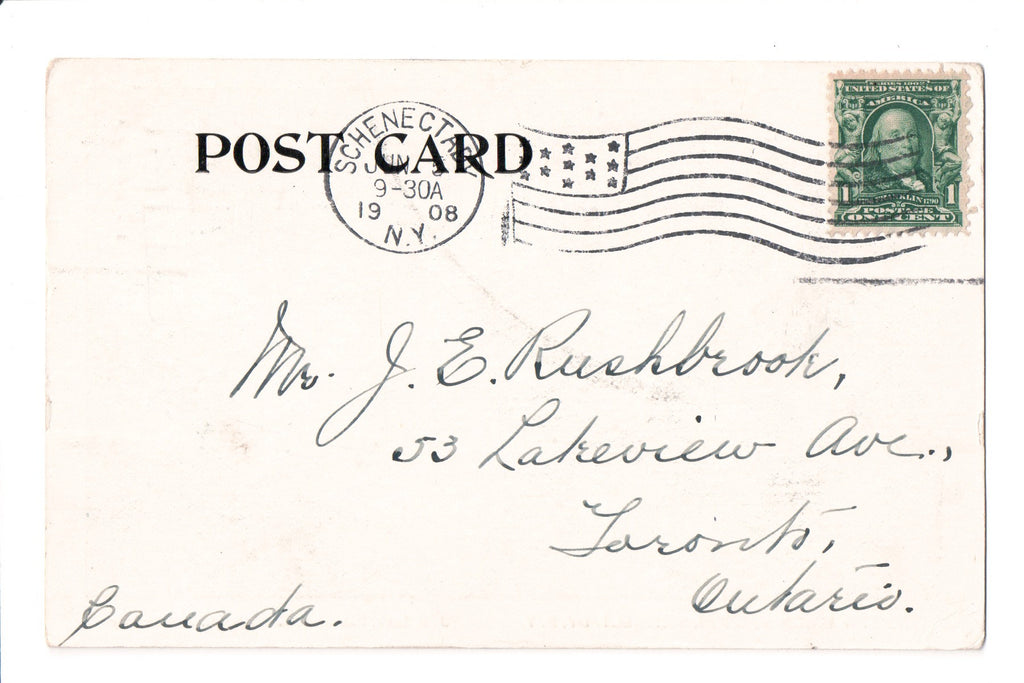 POST CARD
SCHENECTADY
JUN
9-30A
19 08
N.Y.
SERIES 1902
UNITED STATES OF
AMERICA
1 1
FRANKLIN 1790
POSTAGE
ONE CENT
Mr. J. E. Rushbrook,
53 Lakeview Ave.,
Toronto,
Ontario.
Canada.